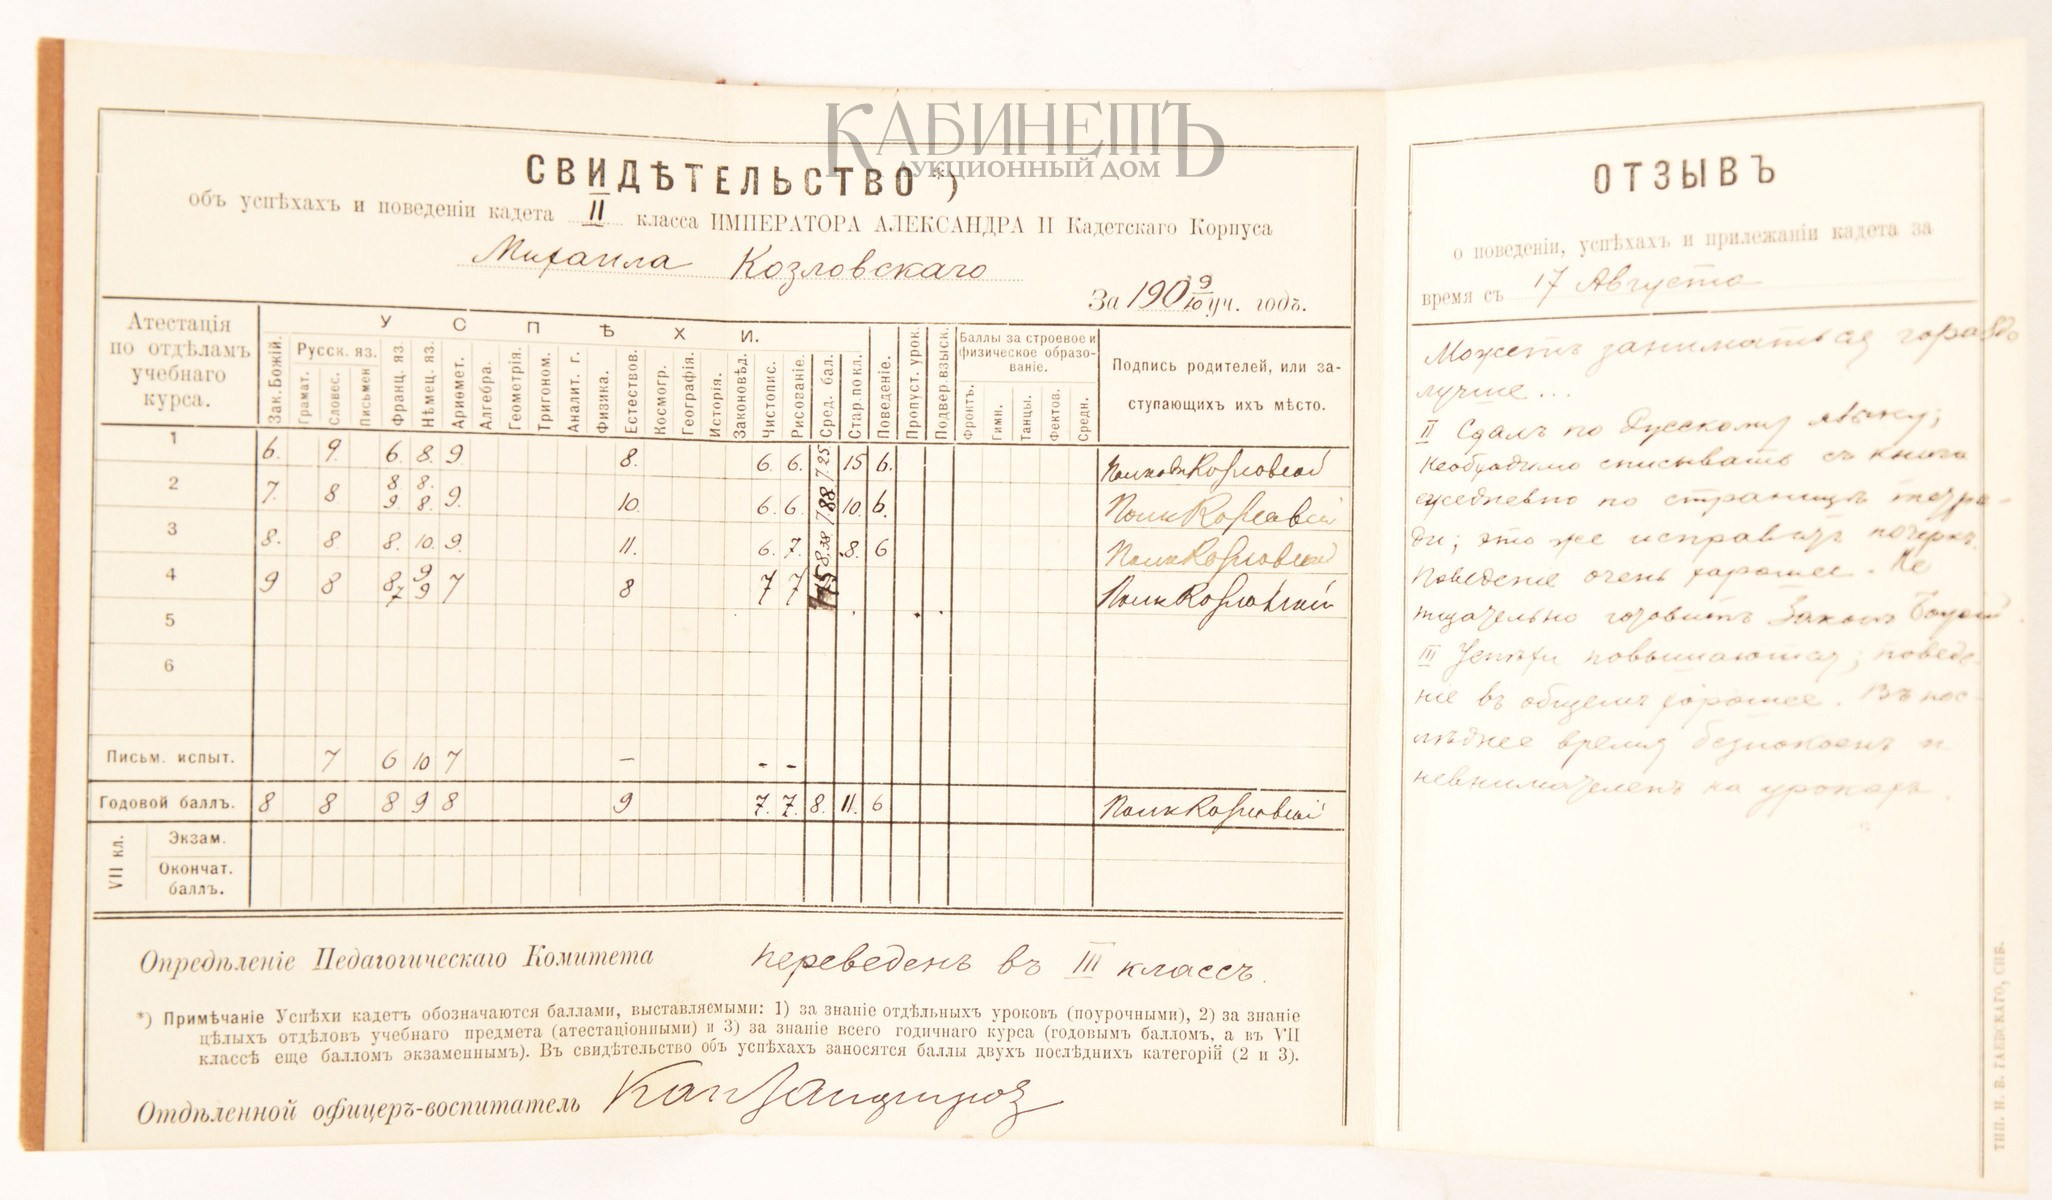 КАБИНЕТЪ
АУКЦИОННЫЙ ДОМ
СВИДѢТЕЛЬСТВО *)
объ успѣхахъ и поведеніи кадета II класса ИМПЕРАТОРА АЛЕКСАНДРА II Кадетскаго Корпуса
Михаила Козловскаго
За 1909/10 уч. годъ.
Атестація по отдѣламъ учебнаго курса.
УСПѢХИ.
Зак. Божій.
Русск. яз.
Грамат.
Словес.
Письмен
Франц. яз.
Нѣмец. яз.
Ариѳмет.
Алгебра.
Геометрія.
Тригоном.
Аналит. г.
Физика.
Естествов.
Космогр.
Географія.
Исторія.
Законовѣд.
Чистопис.
Рисованіе.
Сред. бал.
Стар. по кл.
Поведеніе.
Пропуст. урок.
Подвер. взыск.
Баллы за строевое и физическое образованіе.
Фронтъ.
Гимн.
Танцы.
Фехтов.
Средн.
Подпись родителей, или заступающихъ ихъ мѣсто.
1 6. 9. 6. 8. 9 8. 6. 6. 7.25 15 6. Козловскій
2 7. 8 8 9. 8. 8. 9. 10. 6. 6. 7.88 10. 6. Полк Козловскій
3 8. 8. 8. 10. 9. 11. 6. 7. 8,38 8. 6 Полк Козловскій
4 9 8 8 7 9 9 7 8 7 7 Полк Козловскій
5
6
Письм. испыт. 7 6 10 7 – - -
Годовой баллъ. 8 8 8 9 8 9 7. 7. 8. 11. 6 Полк Козловскій
VII кл.
Экзам.
Окончат. баллъ.
Опредѣленіе Педагогическаго Комитета переведенъ въ III классъ.
*) Примѣчаніе Успѣхи кадет обозначаются баллами, выставляемыми: 1) за знаніе отдѣльныхъ уроков (поурочными), 2) за знаніе
цѣлыхъ отдѣловъ учебнаго предмета (атестаціонными) и 3) за знаніе всего годичнаго курса (годовымъ балломъ, а въ VII
классѣ еще балломъ экзаменнымъ). Въ свидѣтельство объ успѣхахъ заносятся баллы двухъ послѣднихъ категорій (2 и 3).
Отдѣленной офицеръ-воспитатель Кап
ОТЗЫВЪ
о поведеніи, успѣхахъ и прилежаніи кадета за
время съ 17 Августа
Можетъ заниматься гораздо
лучше...
II Сдалъ по Русскому языку;
необходимо списывать съ книги
ежедневно по страницѣ тетра-
ди; это же исправитъ почеркъ.
Поведеніе очень хорошее. Не
тщательно готовитъ Законъ Божій.
III Успѣхи повышаются; поведе-
ніе въ общемъ хорошее. Въ пос-
лѣднее время безпокоенъ и
невнимателенъ на урокахъ.
ТИП. Н. В. ГАЕВСКАГО, СПБ.